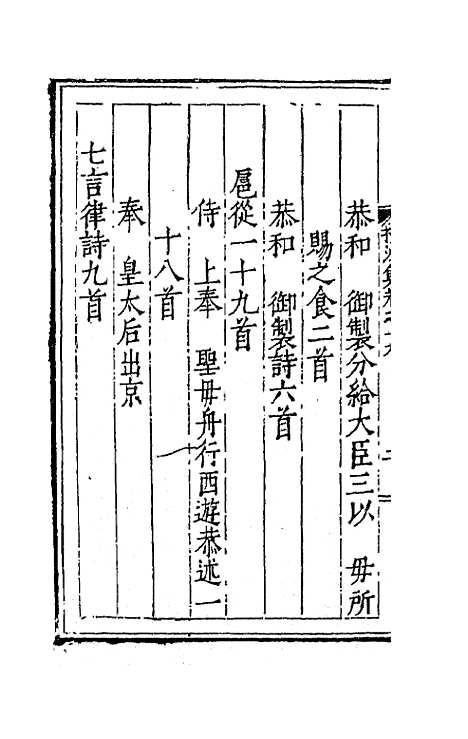 恭和　御製分給大臣三以　毋所
賜之食二首
恭和　御製詩六首
扈從一十九首
侍　上奉　聖毋舟行西遊恭述一
十八首
奉　皇太后出京
七言律詩九首